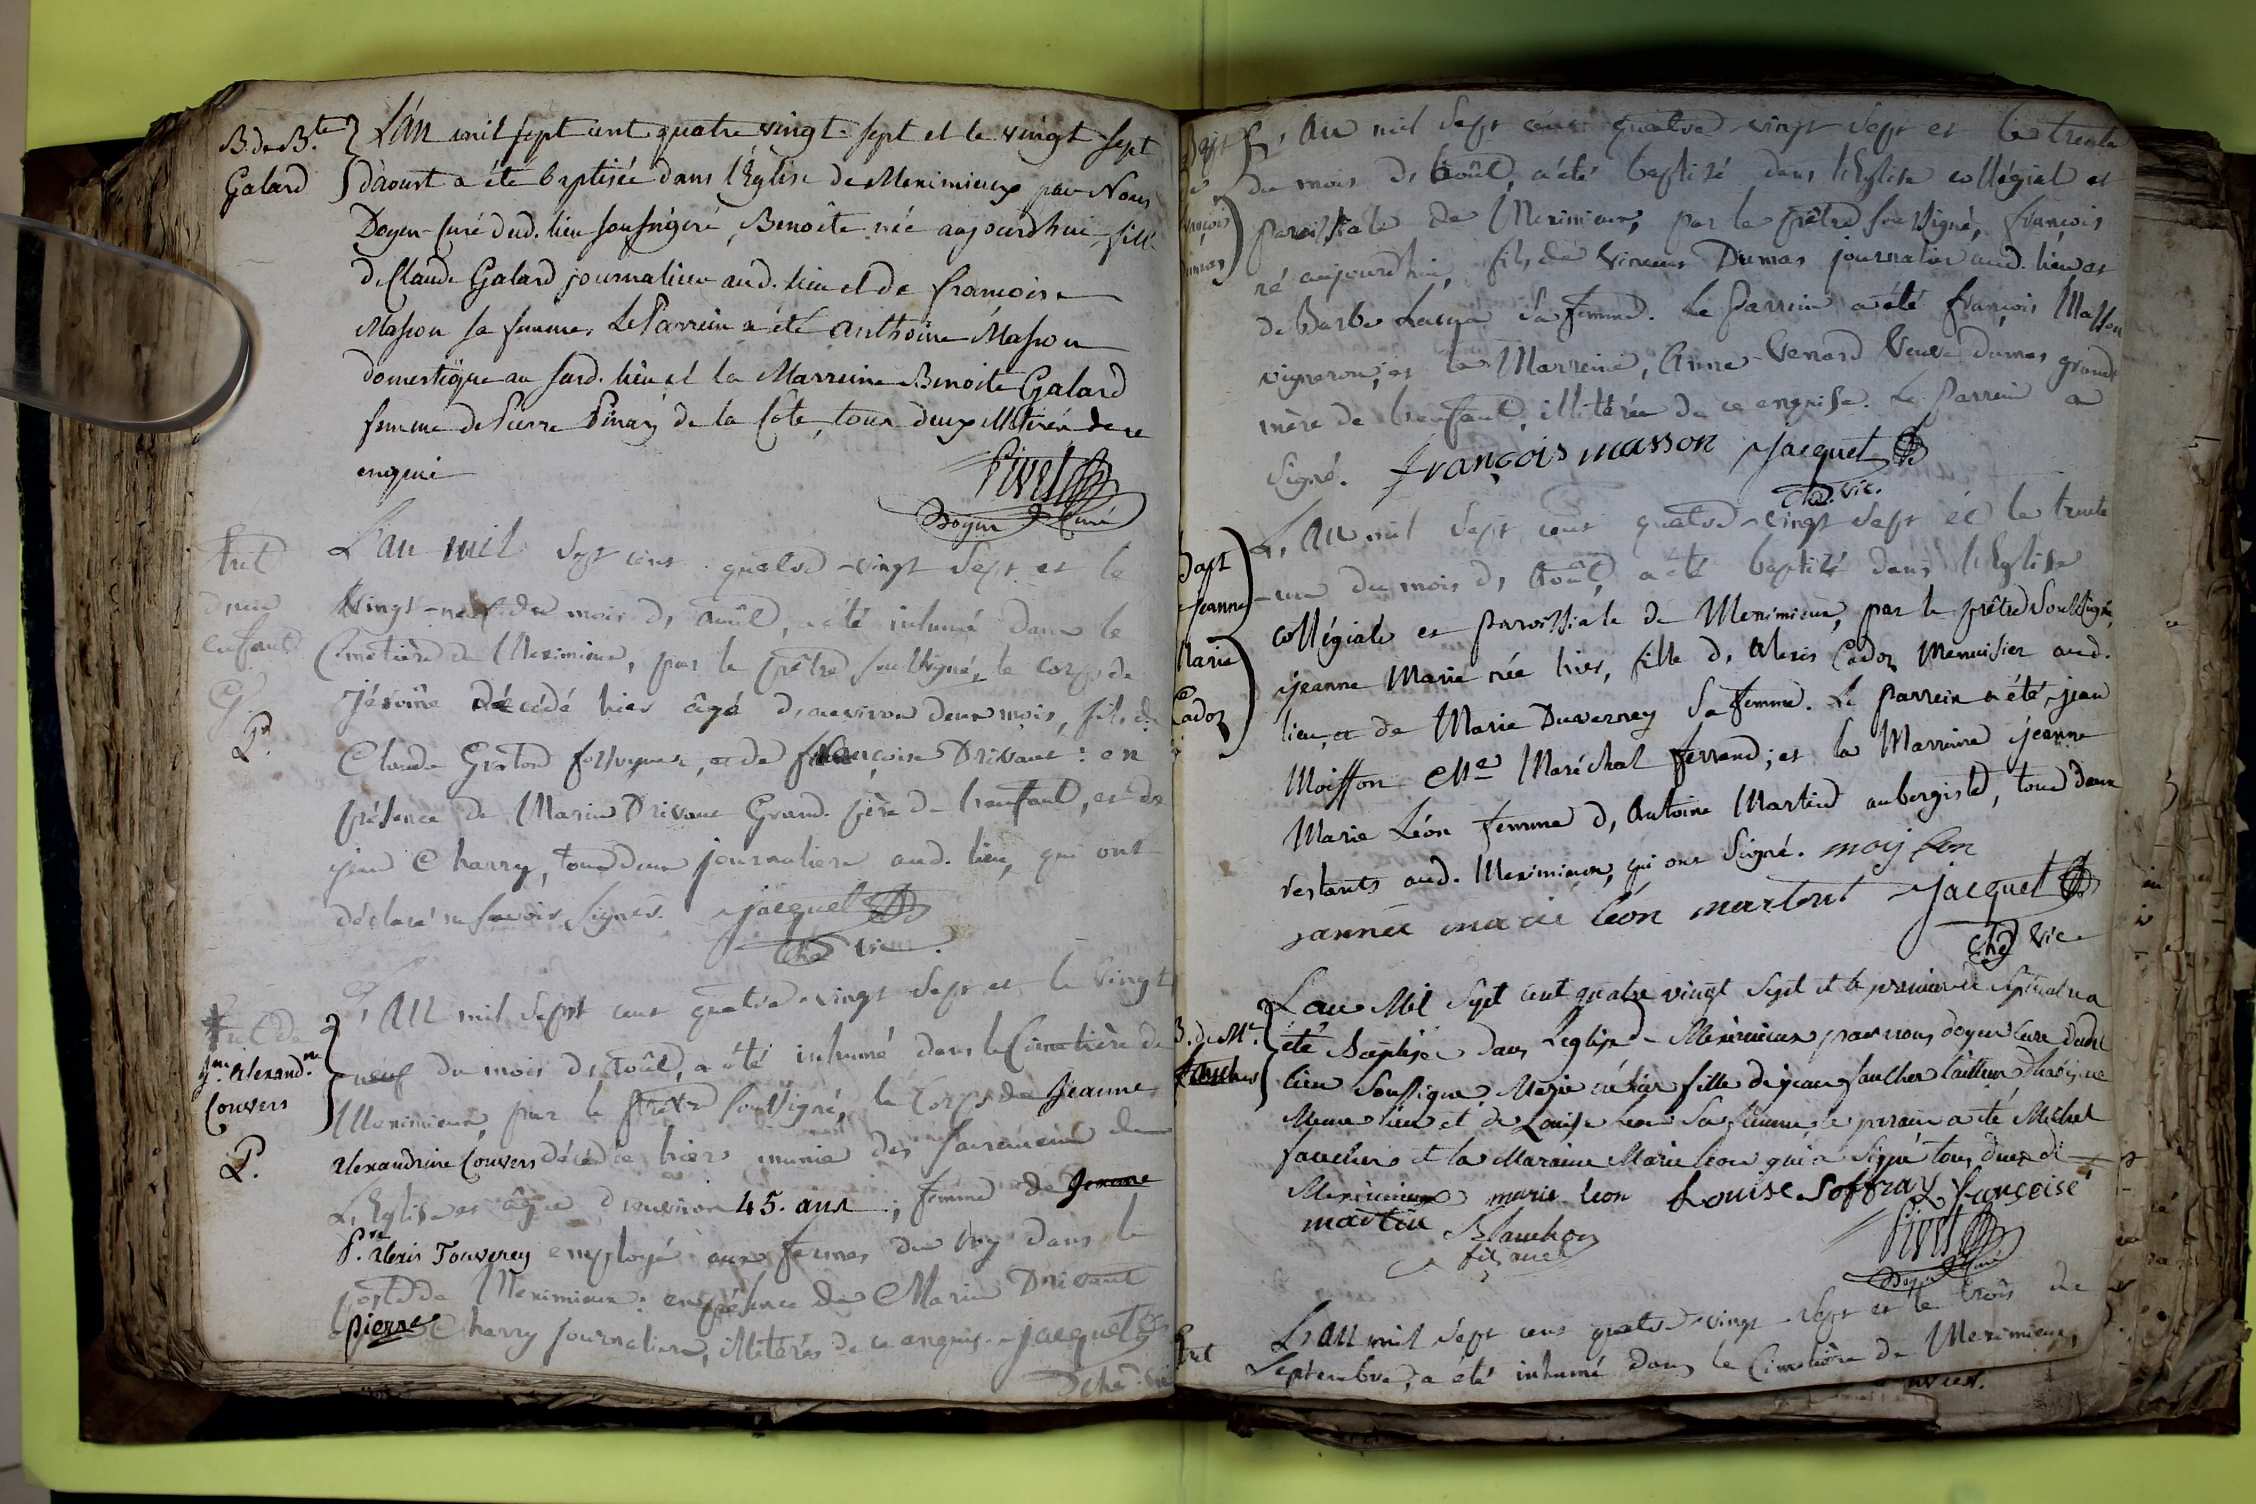 B. de B.te
Galard
L'an mil sept cent quatre vingt sept et le vingt sept
d'aoust a été baptisée dans l'Eglise de Meximieux par Nous
Doyen-Curé dud. lieu soussigné, Benoite née aujourdhui fille
de Claude Galard journalier aud. lieu et de francoise
Masson sa femme, Le Parrein a été anthoine Masson
domestique au sud. lieu et la Marreine Benoite Galard
femme de Pierre Pinay de la Cote, tous deux illiterés de ce
enquis
Pivet
Doyen Curé
d'un
enfant
G.
L'an mil sept cent quatre-vingt sept et le
vingt-neuf du mois d'Août, a été inhumé dans le
Cimetière de Meximieux, par le prêtre soussigné, le corps de
Jérôme décédé hier âgé d'environ deux mois, fils de
Claude fossoyeur, et de françoise Drivaut : en
présence de Marin Drivaut Grand-père de l'enfant, et de
jean Charry, tous deux journaliers aud. lieu, qui ont
déclaré ne savoir signer. Jacquet
che vic.
de
jne Alexand.ne
Couvers
L'An mil sept cent quatre-vingt sept et le vingt
neuf du mois d'Août, a été inhumé dans le Cimetière de
Meximieux par le prêtre soussigné, le corps de Jeanne
alexandrine Couvers décédée hier munie des sacrements de
L'Eglise et âgée d'environ 45. ans ; femme de
P.re alexis Touverey employé aux fermes du Roy dans le
poste de Meximieux : en présence de Marin Drivaut
pierre Charry journaliers, illitérés de ce enquis. Jacquet
che. vic
Bapt
de
françois
Dumas
L'An mil sept cent quatre-vingt sept et le trente
du mois d'Août, a été baptisé dans l'Eglise collégiale et
paroissiale de Meximieux, par le prêtre soussigné, françois
né aujourdhui, fils de Vincent Dumas journalier aud. lieu et
de Barbe sa femme. Le Parrein a été françois Masson
vigneron, et la Marreine, Anne Venard Veuve dumas grand
mère de l'enfant, illitérée de ce enquise. Le Parrein a
signé. françois masson Jacquet
che. vic.
Bapt
de jeanne
Marie
Cadoz
L'An mil sept cent quatre-vingt sept et le trente
-un du mois d'Août, a été baptizé dans l'Eglise
collégiale et paroissiale de Meximieux, par le prêtre soussigné,
jeanne Marie née hier, fille d'Alexis Cadoz Menuisier aud.
lieu, et de Marie Duverney sa femme. Le parrein a été jean
Moisson Me Maréchal ferrand ; et la Marreine jeanne
Marie Léon femme d'Antoine Martin aubergiste, tous deux
restants aud. Meximieux, qui ont signé.
jannee marie léon Jacquet
che vic
B. de M.e
faucher
L'an Mil Sept cent quatre vingt Sept et le premier de Septembre a
été Baptisée dans L'eglise de Meximieux par nous doyen Curé dudit
lieu Soussigné Marie née hier fille de jean faucher
Meme lieu et de Louise Leon Sa femme, le parrain a été Michel
faucher et la Maraine Marie leon qui a Signé tous deux de
Meximieux marie leon Louise Soffray françoise
martin Blanchon
fils ainé
Pivet
Doyen Curé
L'An mil sept cent quatre-vingt sept et le trois de
Septembre, a été inhumé dans le Cimetière de Meximieux,